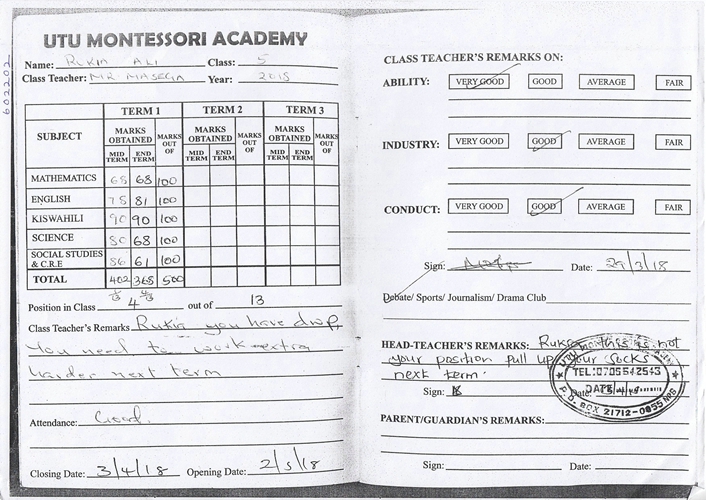 UTU MONTESSORI ACADEMY
Name: RUKIA ALI Class: 5
Class Teacher: MR MASEGA Year: 2018
602202
TERM 1 TERM 2 TERM 3
SUBJECT MARKS OBTAINED MARKS OUT OF MARKS OBTAINED MARKS OUT OF MARKS OBTAINED MARKS OUT OF
MID TERM END TERM MID TERM END TERM MID TERM END TERM
MATHEMATICS 68 68 100
ENGLISH 78 81 100
KISWAHILI 90 90 100
SCIENCE 80 68 100
SOCIAL STUDIES & C.R.E 86 61 100
TOTAL 402 368 500
Position in Class 4 out of 13
Class Teacher's Remarks Rukia you have drop,
You need to work extra
harder next term
Attendance: Good.
Closing Date: 3/4/18 Opening Date: 2/5/18
CLASS TEACHER'S REMARKS ON:
ABILITY: VERY GOOD GOOD AVERAGE FAIR
INDUSTRY: VERY GOOD GOOD AVERAGE FAIR
CONDUCT: VERY GOOD GOOD AVERAGE FAIR
Sign: Date: 29/3/18
Debate/ Sports/ Journalism/ Drama Club
HEAD-TEACHER'S REMARKS: Rukia this is not
your position pull up your socks
next term.
Sign: Date:
TEL:0705542543
DATE
P.O. BOX 21712-00
PARENT/GUARDIAN'S REMARKS:
Sign: Date: